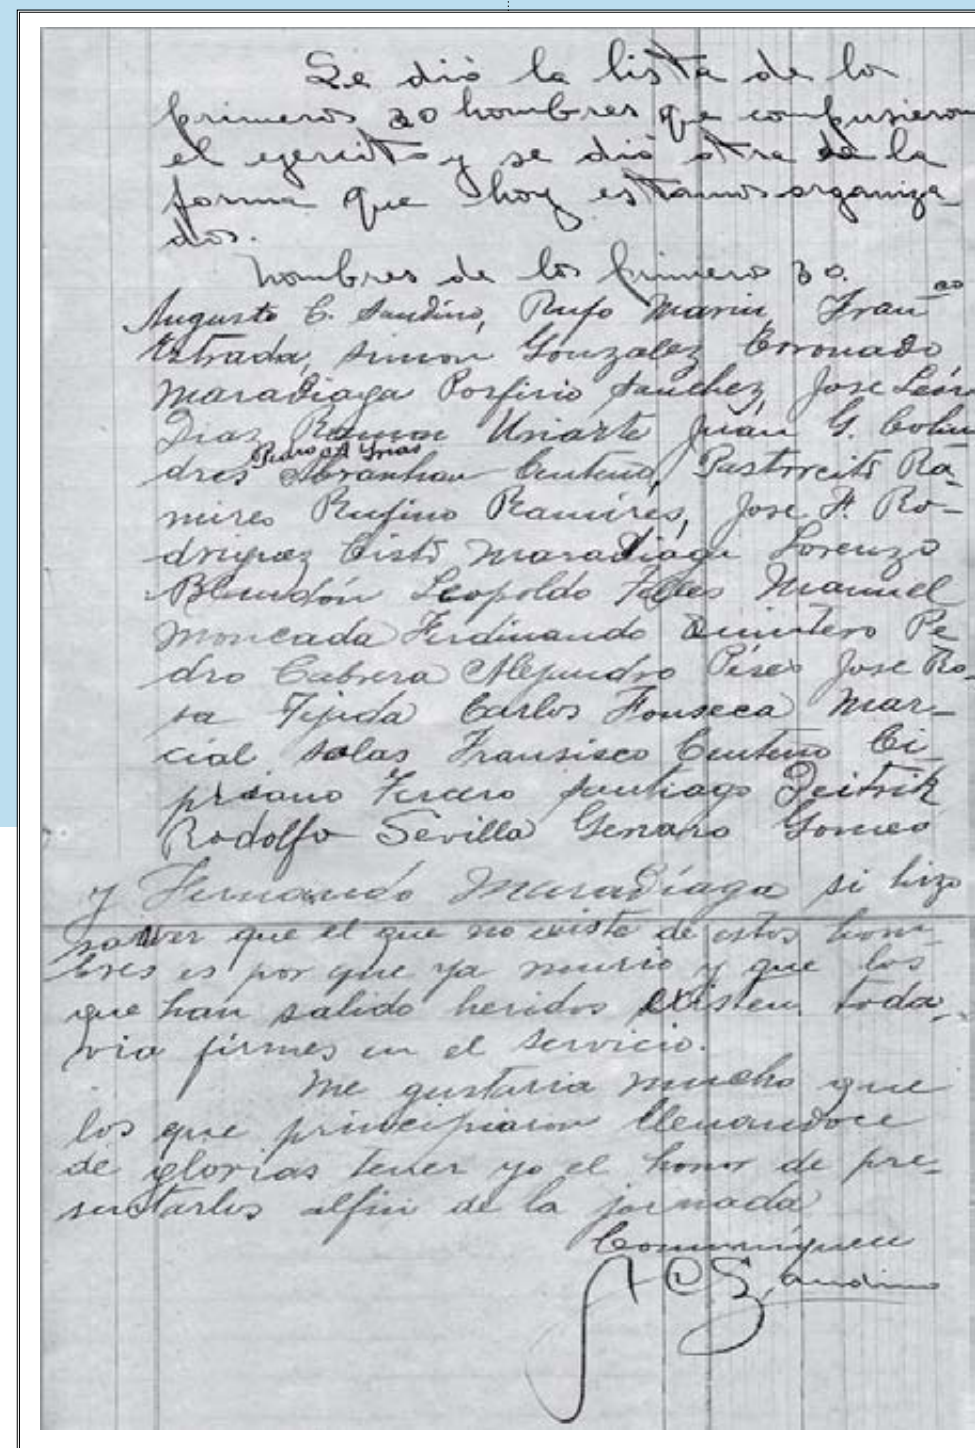 Se dió la lista de los
primeros 30 hombres que compusieron
el ejercito y se dió otra de la
forma que hoy estamos organiza
dos.
Nombres de los primero 30.
Augusto C. Sandino, Rufo Marin, Fran co
Estrada, Simon Gonzalez Coronado
Maradiaga Porfirio Sanchez Jose León
Diaz Ramon Uriarte Juán G. Colin
Pedro A Irias
dres Abranhan Centeno, Pastorcito Ra-
mires Rufino Ramires, Jose F. Ro-
driguez Cisto Maradiága Lorenzo
Blandón Leopoldo Telles Manuel
Moncada Ferdinando Quintero Pe
dro Cabrera Alejandro Pérez Jose Ro-
sa Tejida Carlos Fonseca Mar-
cial Salas Fransisco Centeno Ci-
priano Tercero Santiago Deitrik
Rodolfo Sevilla Genaro Gomes
y Fernando Maradíaga si hizo
saver que el que no existe de estos hom-
bres es por que ya murió y que los
que han salido heridos existen toda-
via firmes en el servicio.
Me gustaria mucho que
los que principiaron llenandoce
de glorias tener yo el honor de pre-
sentarlos alfin de la jornada
Comuníquen
A C Sandino